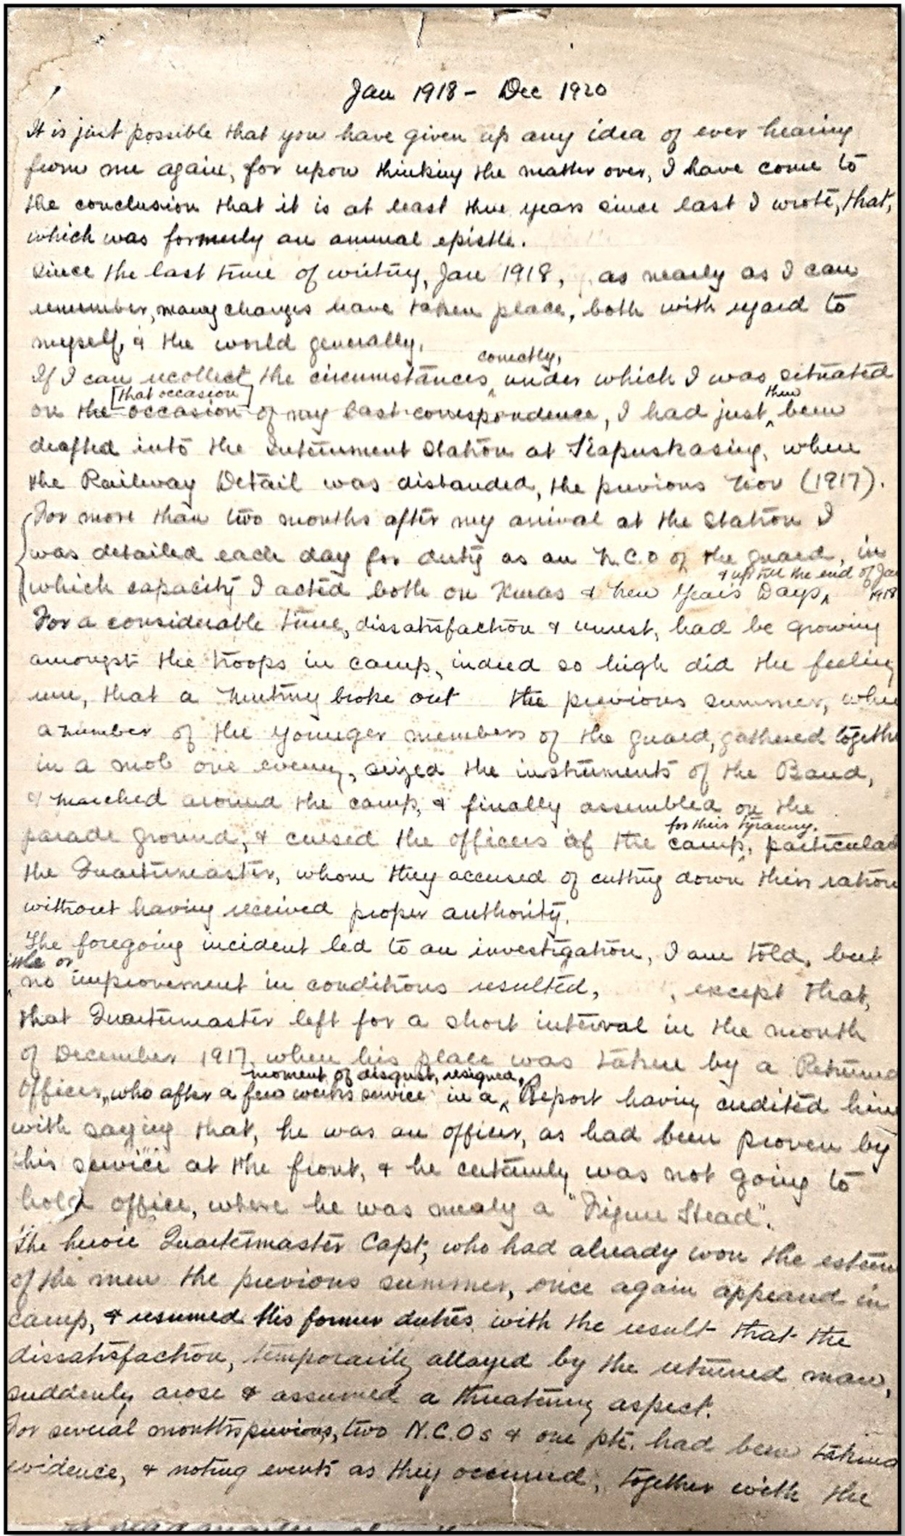 Jan 1918 - Dec 1920
It is just possible that you have given up any idea of ever hearing
from me again, for upon thinking the matter over, I have come to
the conclusion that it is at least three years since last I wrote, that,
which was formerly an annual epistle.
Since the last time of writing, Jan 1918, as nearly as I can
remember, many changes have taken place, both with regard to
myself, & the world generally.
correctly,
If I can recollect the circumstances, under which I was situated
[that occasion] then
on the occasion of my last correspondence, I had just been
drafted into the Internment Station at Kapuskasing, when
the Railway Detail was disbanded, the previous Nov (1917).
For more than two months after my arrival at the Station I
was detailed each day for duty as an N.C.O of the guard, in
& up till the end of Jan 1918
which capacity I acted both on Xmas & New Years Days,
For a considerable time, dissatisfaction & unrest, had be growing
amongst the troops in camp, indeed so high did the feeling
run, that a mutiny broke out the previous summer, when
a number of the younger members of the guard, gathered togethe
in a mob one evening, seized the instruments of the Band,
& marched around the camp, & finally assembled on the
for their tyranny.
parade ground, & cursed the officers of the camp, particular
the Quartermaster, whom they accused of cutting down their ration
without having received proper authority.
The foregoing incident led to an investigation, I am told, but
ittle or
no improvement in conditions resulted, , except that,
that Quartermaster left for a short interval in the month
of December 1917, when his place was taken by a Returned
moment of disgust, resigned,
Officer, who after a few weeks service in a Report having credited him
with saying that, he was an officer, as had been proven by
his service at the front, & he certainly was not going to
hold office, where he was merly a "Figure Head".
The heroic Quartermaster Capt, who had already won the esteem
of the men the previous summer, once again appeared in
camp, & resumed his former duties with the result that the
dissatisfaction, temporarily allayed by the returned man,
suddenly arose & assumed a threatening aspect.
For several months previous, two N.C.Os & one pte. had been taking
evidence, & noting events as they occurred, together with the